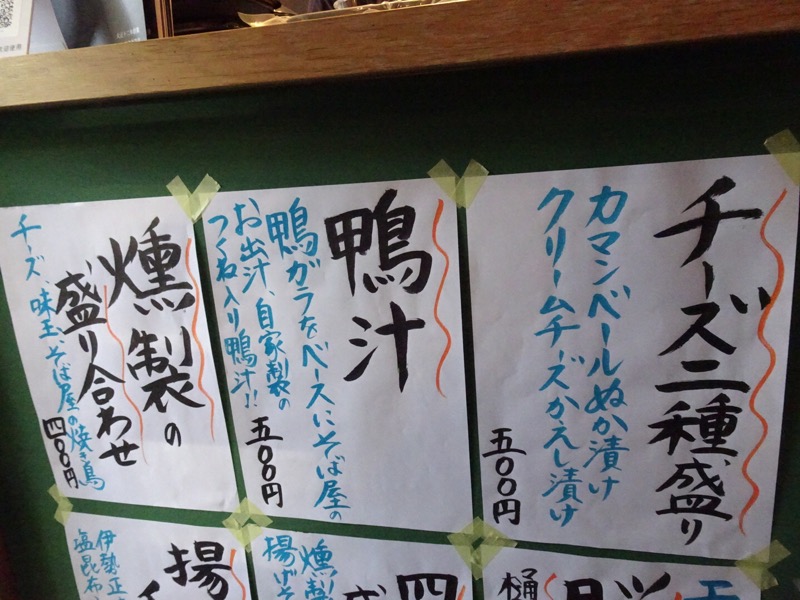 チーズ二種盛り
カマンベールぬか漬け
クリームチーズかえし漬け
五〇〇円
鴨汁
鴨ガラをベースにそば屋の
お出汁、自家製の
つくね入り鴨汁!!
五〇〇円
燻製の
盛り合わせ
チーズ、味玉、そば屋の焼き鳥
四〇〇円
樋
四
燻製
揚げそ
揚
伊勢正
塩昆布